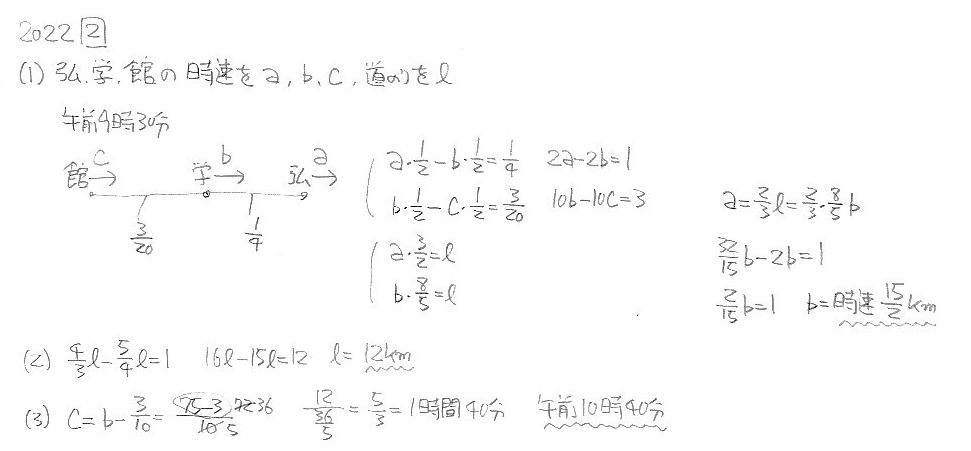 2022 2
(1) 弘、学、館の時速をa, b, c, 道のりをl
午前9時30分
館 c→ 学 b→ 弘 a→
3/20 1/4
a・1/2-b・1/2=1/4 2a-2b=1
b・1/2-c・1/2=3/20 10b-10c=3
a・3/2=l
b・8/5=l
a=2/3l=2/3・8/5b
32/15b-2b=1
2/15b=1 b=時速15/2km
(2) 4/3l-5/4l=1 16l-15l=12 l=12km
(3) c=b-3/10=75-3/10 72 36/5 12/(36/5)=5/3=1時間40分 午前10時40分